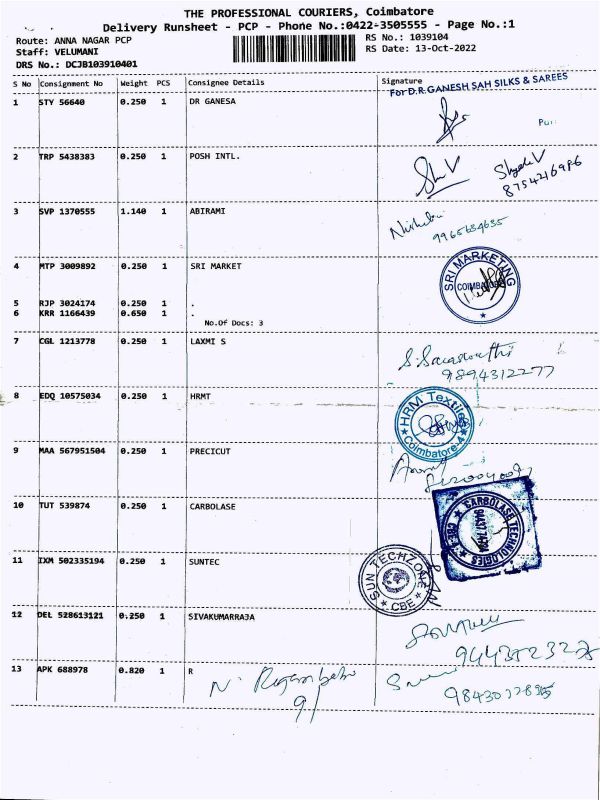 THE PROFESSIONAL COURIERS, Coimbatore
Delivery Runsheet - PCP - Phone No.:0422-3505555 - Page No.:1
Route: ANNA NAGAR PCP RS No.: 1039104
Staff: VELUMANI RS Date: 13-Oct-2022
DRS No.: DCJB103910401
S No Consignment No Weight PCS Consignee Details Signature
For D.R.GANESH SAH SILKS & SAREES
1 STY 56640 0.250 1 DR GANESA
2 TRP 5438383 0.250 1 POSH INTL.
8754216986
3 SVP 1370555 1.140 1 ABIRAMI
9965634635
4 MTP 3009892 0.250 1 SRI MARKET
SRI MARKETING COIMBATORE
5 RJP 3024174 0.250 1 .
6 KRR 1166439 0.650 1 .
No.Of Docs: 3
7 CGL 1213778 0.250 1 LAXMI S
9894312277
8 EDQ 10575034 0.250 1 HRMT
HRM Textiles Coimbatore-4
9 MAA 567951504 0.250 1 PRECICUT
10 TUT 539874 0.250 1 CARBOLASE
CARBOLASE TECHNOLOGIES
11 IXM 502335194 0.250 1 SUNTEC
SUN TECHZONE CBE
12 DEL 528613121 0.250 1 SIVAKUMARRAJA
13 APK 688978 0.820 1 R